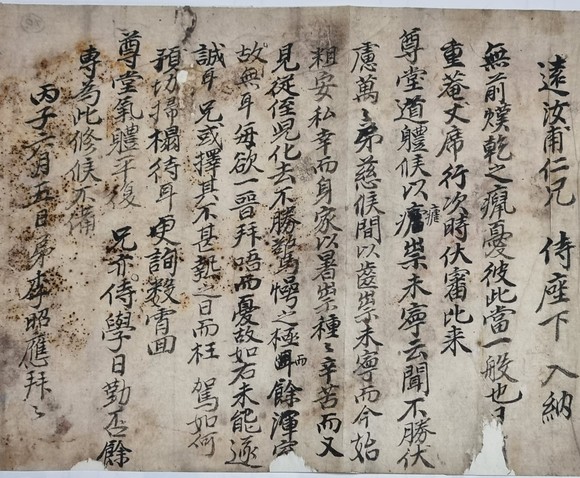 遠汝甫仁兄 侍座下 入納
無前熯乾之痾憂彼此當一般也日
重菴丈席行次時伏審比来
尊堂道體候以瘧祟未寧云聞不勝伏
慮萬〻弟慈候間以齒祟未寧而今始
粗安私幸而身家以暑祟種〻辛苦而又
見從侄兒化去不勝驚愕之極而餘渾宅
故無耳每欲一晉拜唔而憂故如右未能遂
誠耳兄或擇其不甚熱之日而枉 駕如何
預切掃榻待耳 更詢數宵回
尊堂氣體平復 兄亦侍學日勤否餘
專為此修候不備
丙子六月五日弟李昭應拜〻